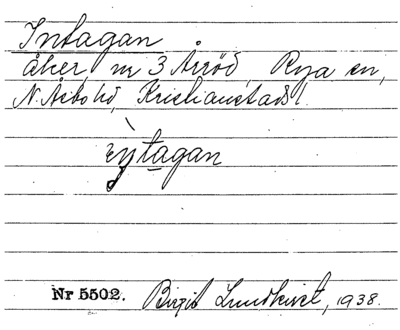 Intagan
åker, nr 3 Årröd, Rya sn,
N. Åsbo hd, Kristianstads l.
i̯ŋtagan
Nr 5502. Birgit Lundkvist, 1938.